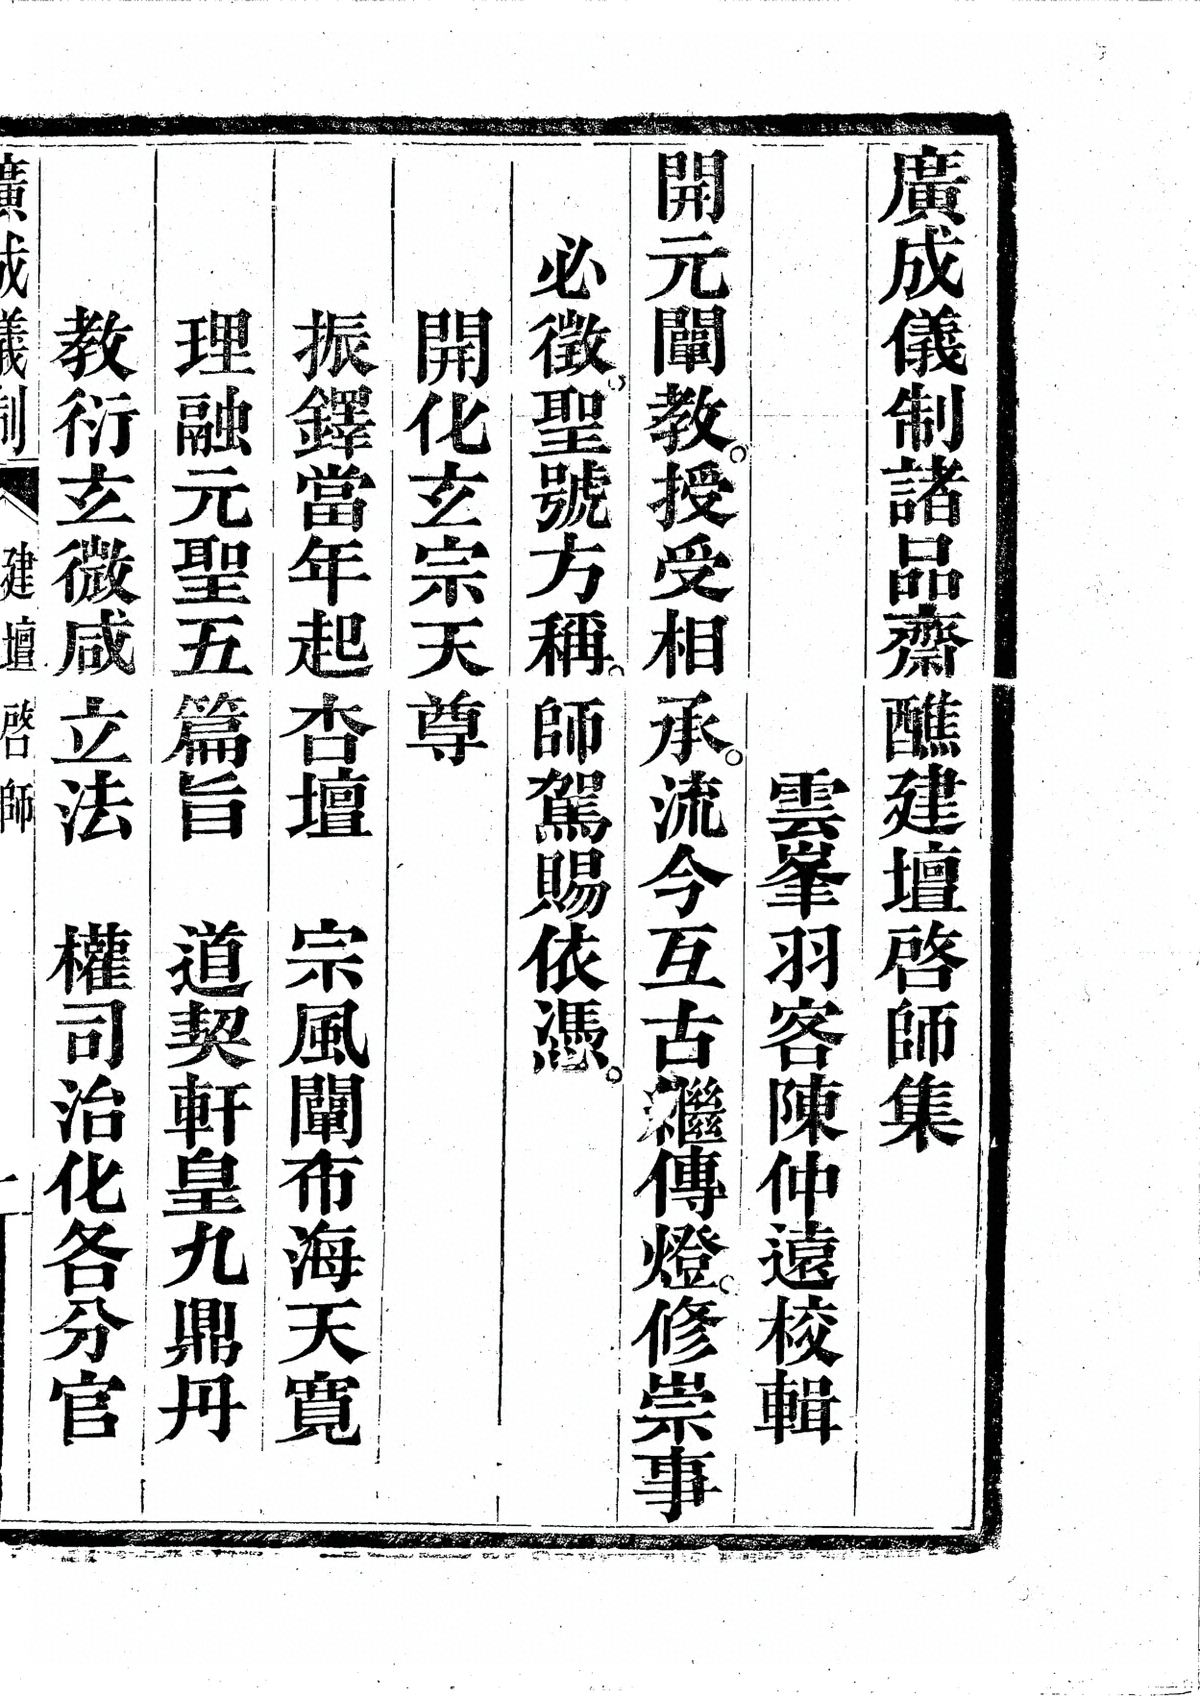 廣成儀制諸品齋醮建壇啓師集
雲峯羽客陳仲遠校輯
開元闡教。授受相承。流今互古繼傳燈。修崇事
必徵。聖號方稱。師駕賜依憑。
開化玄宗天尊
振鐸當年起杏壇　宗風闡布海天寬
理融元聖五篇旨　道契軒皇九鼎丹
教衍玄微咸立法　權司治化各分官
廣成儀制　建壇啓師